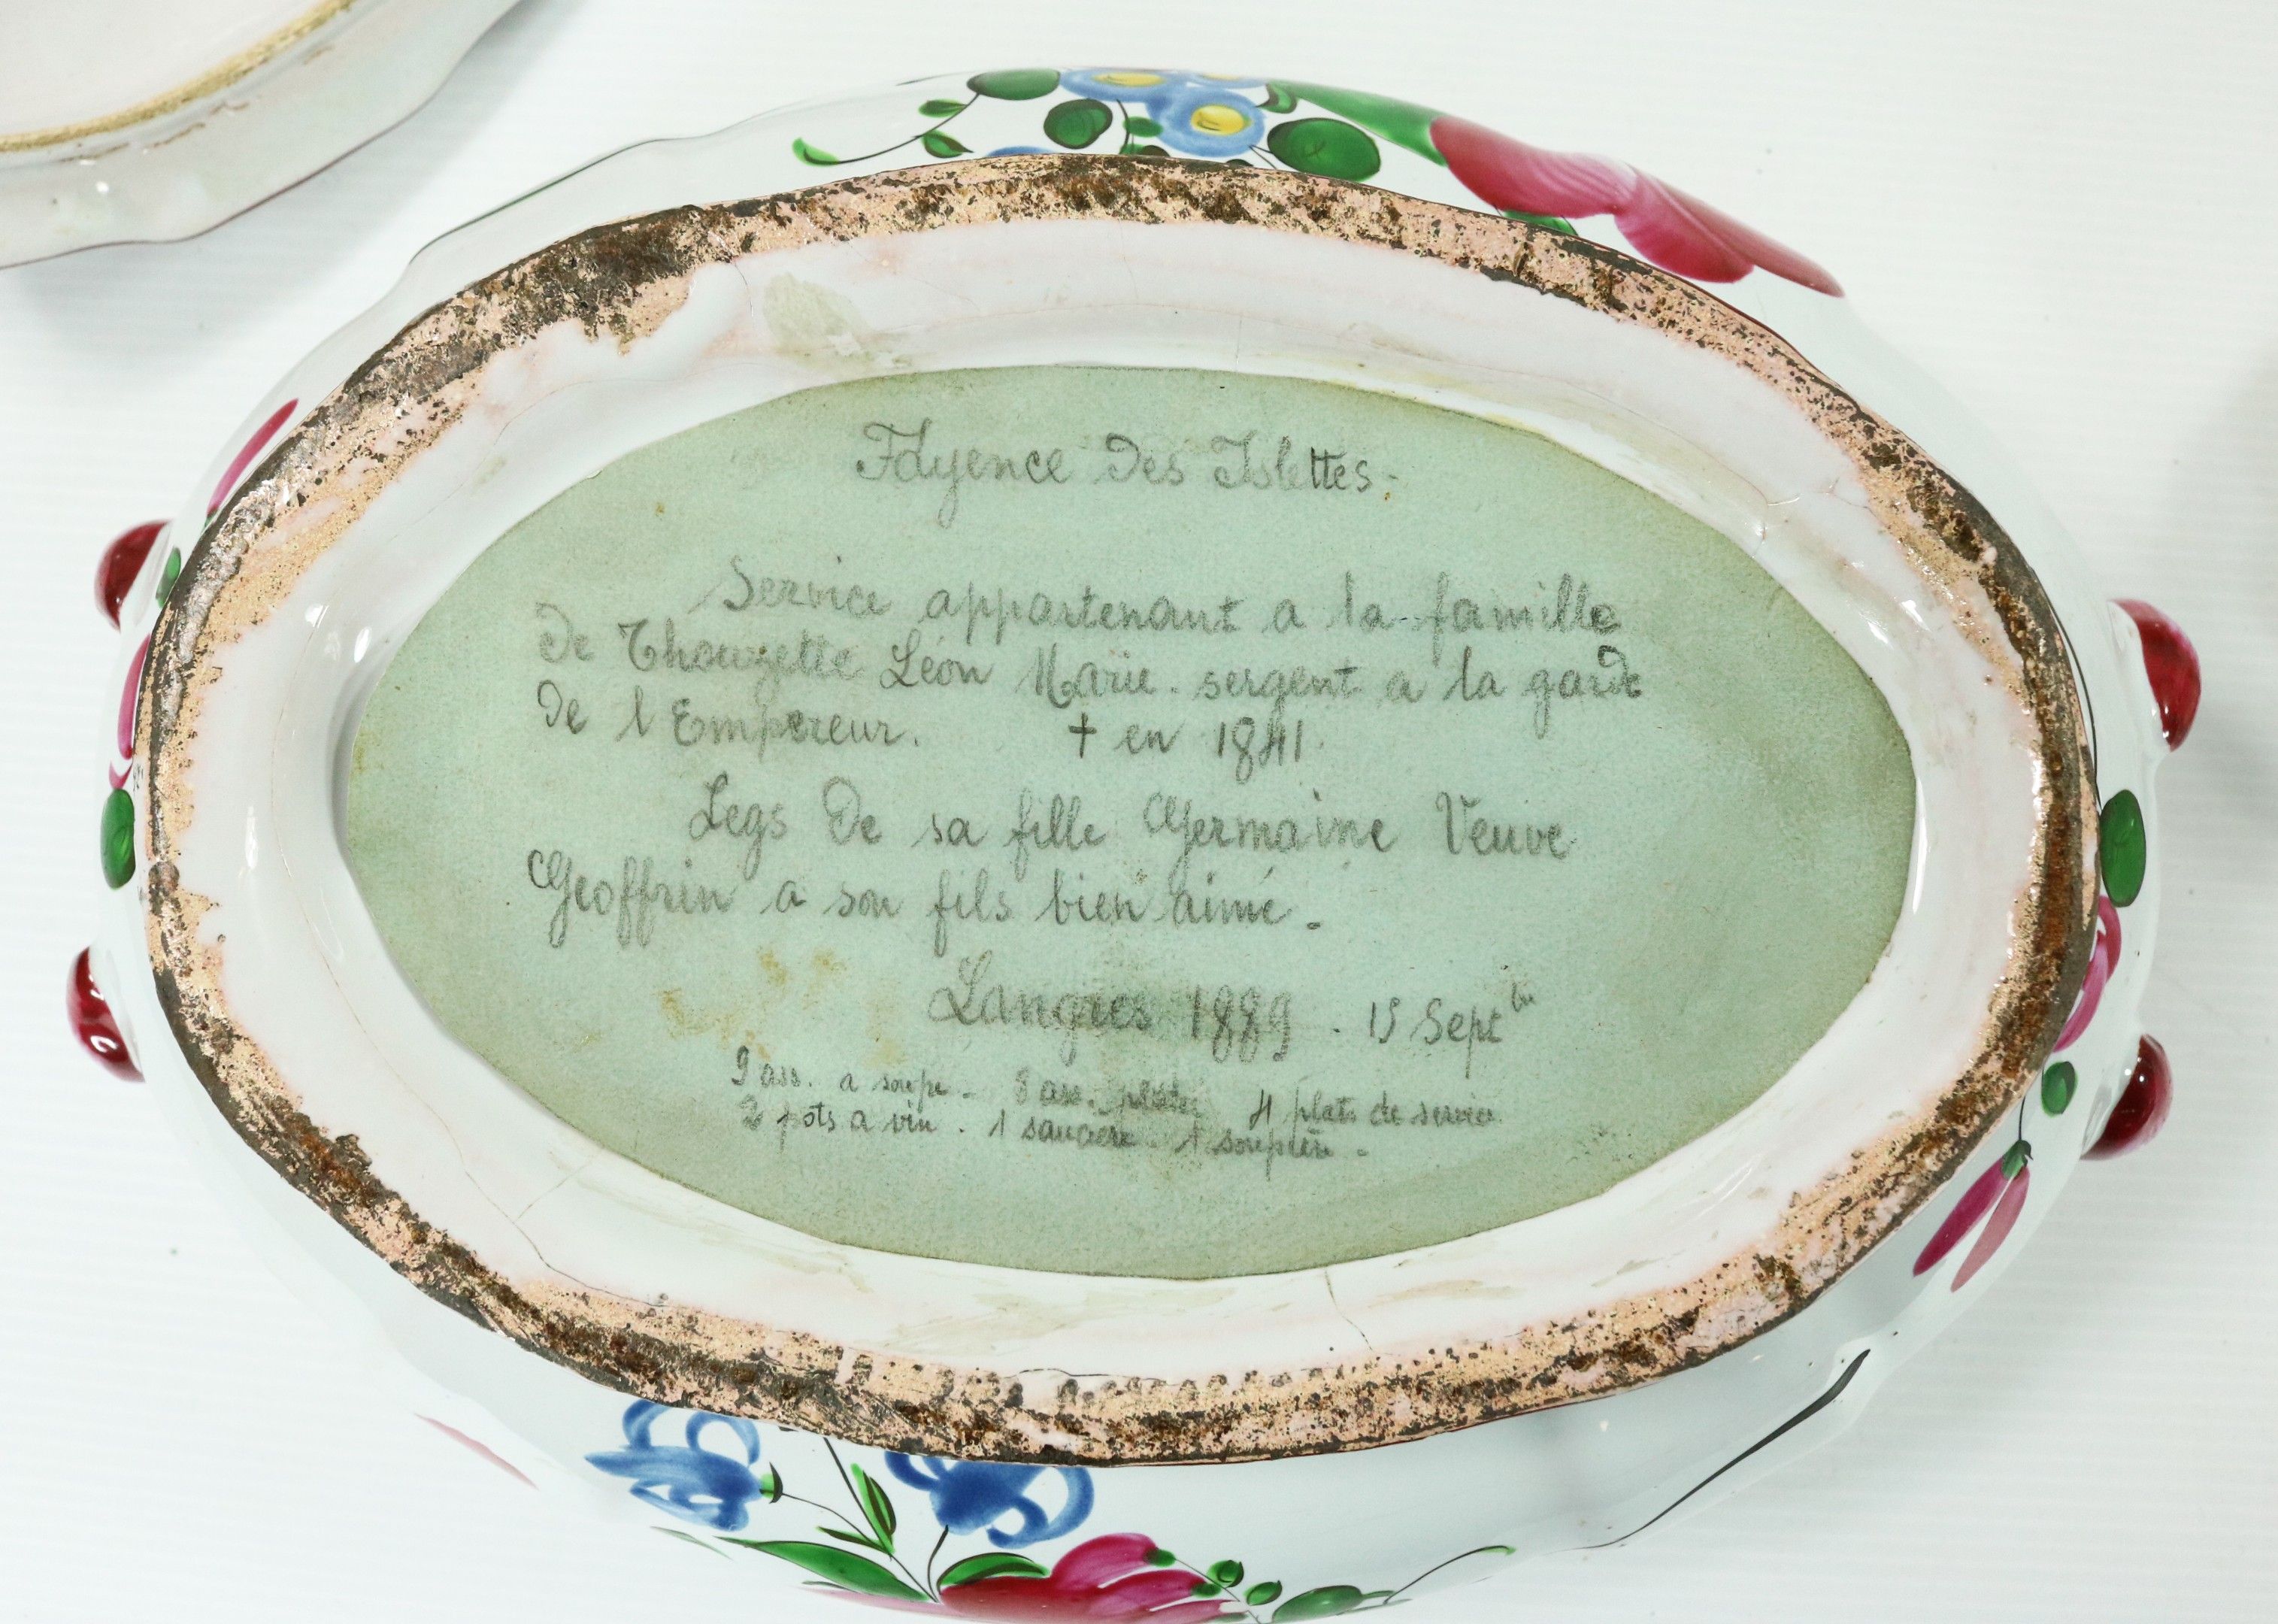 Fayence Des Islettes -
Service appartenant a la famille
De Thouzette Léon Marie. sergent a la garde
De l Empereur. † en 1841.
Legs De sa fille Germaine Veuve
Geoffrin a son fils bien aimé. -
Langres 1889 . 15 Sept bre
9 ass. a soupe - 8 ass. plate 4 plats de service
2 pots a vin . 1 sauciere - 1 soupière -